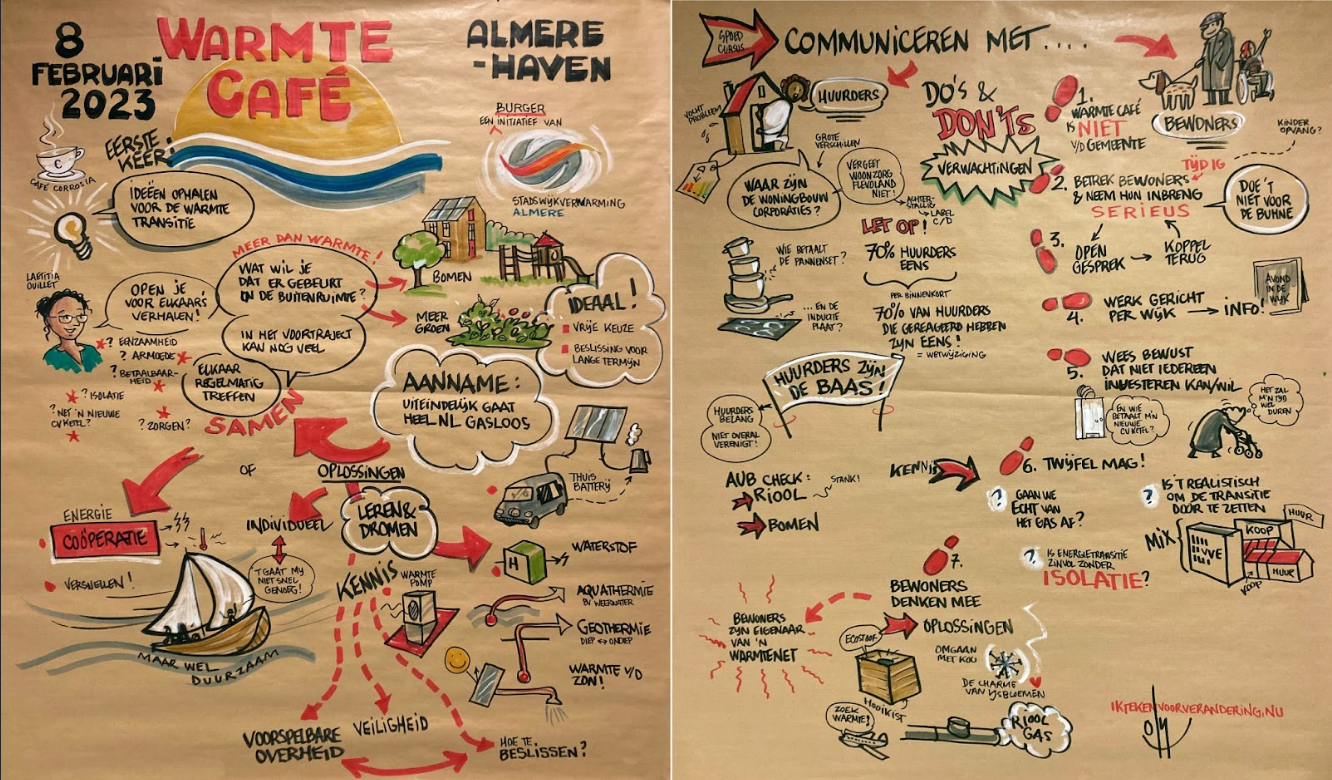 8
FEBRUARI
2023
WARMTE
CAFÉ
ALMERE
-HAVEN
EERSTE
KEER!
C
CAFÉ CORROSIA
BURGER
EEN INITIATIEF VAN
STADSWIJKVERWARMING
ALMERE
IDEEËN OPHALEN
VOOR DE WARMTE
TRANSITIE
MEER DAN WARMTE!
WAT WIL JE
DAT ER GEBEURT
IN DE BUITENRUIMTE?
BOMEN
MEER
GROEN
IN HET VOORTRAJECT
KAN NOG VEEL
LAETITIA
OUILLET
OPEN JE
VOOR ELKAARS
VERHALEN!
? EENZAAMHEID
? ARMOEDE
? BETAALBAAR-
HEID
? ISOLATIE
? NET 'N NIEUWE
CV KETEL?
? ZORGEN?
ELKAAR
REGELMATIG
TREFFEN
SAMEN
IDEAAL!
VRIJE KEUZE
BESLISSING VOOR
LANGE TERMIJN
AANNAME:
UITEINDELIJK GAAT
HEEL NL GASLOOS
OF
OPLOSSINGEN
THUIS
BATTERIJ
ENERGIE
COÖPERATIE
VERSNELLEN!
INDIVIDUEEL
'T GAAT MIJ
NIET SNEL
GENOEG!
MAAR WEL
DUURZAAM
LEREN &
DROMEN
KENNIS
WARMTE
POMP
H
WATERSTOF
AQUATHERMIE
BV WEERWATER
GEOTHERMIE
DIEP ↔ ONDIEP
WARMTE V/D
ZON!
VOORSPELBARE
OVERHEID
VEILIGHEID
HOE TE
BESLISSEN?
SPOED
CURSUS
COMMUNICEREN MET....
VOCHT
PROBLEEM
HUURDERS
GROTE
VERSCHILLEN
WAAR ZIJN
DE WONINGBOUW
CORPORATIES?
VERGEET
WOONZORG
FLEVOLAND
NIET!
ACHTER-
STALLIG
LABEL
C/D
LET OP!
70% HUURDERS
EENS
PER BINNENKORT
70% VAN HUURDERS
DIE GEREAGEERD HEBBEN
ZIJN EENS!
= WETWIJZIGING
WIE BETAALT
DE PANNENSET?
...EN DE
INDUCTIE
PLAAT?
HUURDERS ZIJN
DE BAAS!
HUURDERS
BELANG
NIET OVERAL
VERENIGT!
AUB CHECK:
RIOOL
STANK!
BOMEN
DO'S &
DON'TS
VERWACHTINGEN
BEWONERS
KINDER
OPVANG?
1.
WARMTE CAFÉ
IS NIET
V/D GEMEENTE
TIJDIG
2. BETREK BEWONERS
& NEEM HUN INBRENG
SERIEUS
DOE 'T
NIET VOOR
DE BÜHNE
3.
OPEN
GESPREK
KOPPEL
TERUG
4.
WERK GERICHT
PER WIJK
INFO!
AVOND
IN DE
WIJK
5.
WEES BEWUST
DAT NIET IEDEREEN
INVESTEREN KAN/WIL
EN WIE
BETAALT M'N
NIEUWE
CV KETEL?
HET ZAL
M'N TIJD
WEL
DUREN
KENNIS
6. TWIJFEL MAG!
?
GAAN WE
ECHT VAN
HET GAS AF?
?
IS 'T REALISTISCH
OM DE TRANSITIE
DOOR TE ZETTEN
MIX
VVE
KOOP
HUUR
HUUR
KOOP
?
IS ENERGIETRANSITIE
ZINVOL ZONDER
ISOLATIE?
7.
BEWONERS
DENKEN MEE
OPLOSSINGEN
BEWONERS
ZIJN EIGENAAR
VAN 'N
WARMTENET
ECOSTOOF
HOOIKIST
OMGAAN
MET KOU
DE CHARME
VAN IJSBLOEMEN
ZOEK
WARMTE!
RIOOL
GAS
IKTEKENVOORVERANDERING.NU